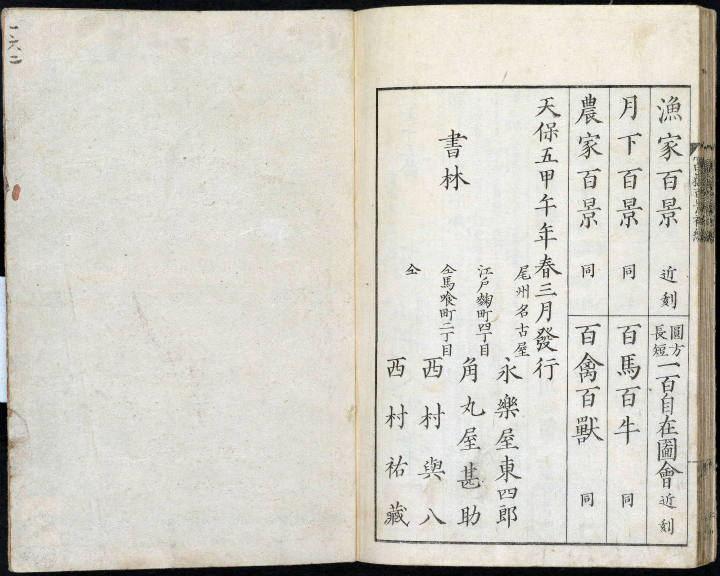 漁家百景 近刻
月下百景 同
農家百景 同
圓方
長短
一百自在圖會 近刻
百馬百牛 同
百禽百獸 同
天保五甲午年春三月發行
書林
尾州名古屋
永樂屋東四郎
江戸麹町四丁目
角丸屋甚助
仝馬喰町二丁目
西村與八
仝
西村祐藏